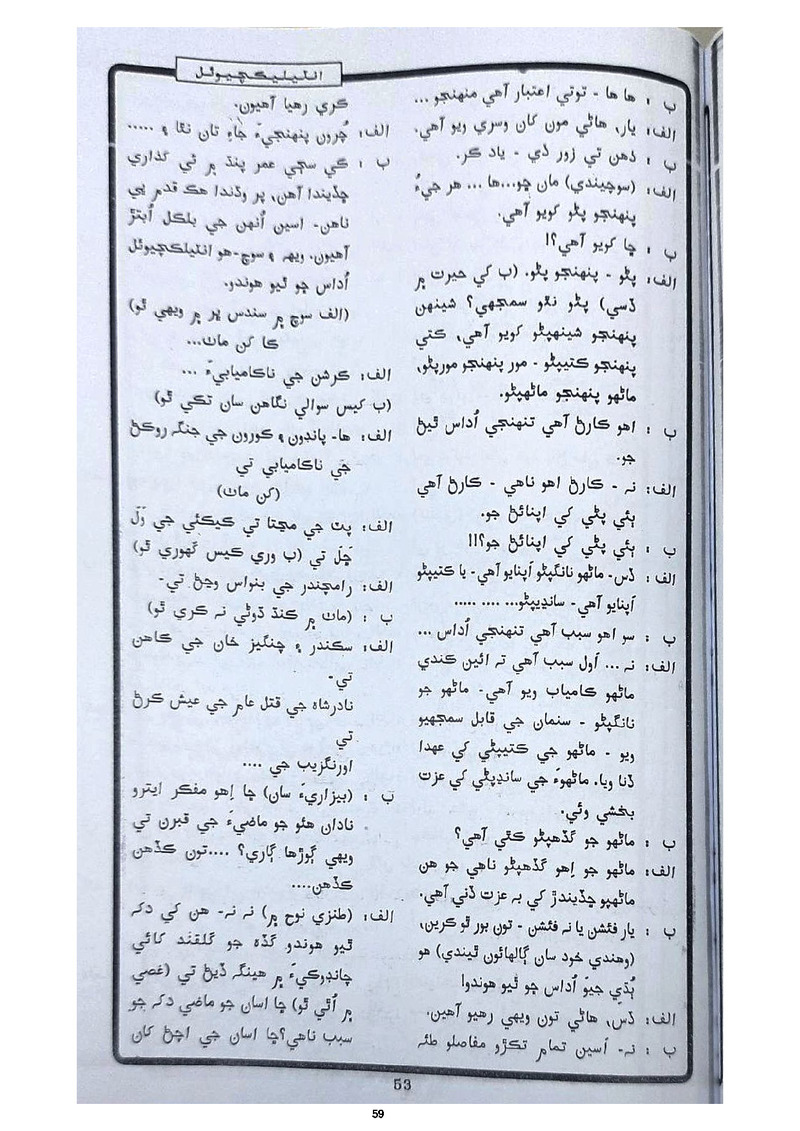 انٽيليڪچيوئل
ب : ها ها - توتي اعتبار آهي منهنجو ...
الف: يار، هاڻي مون کان وسري ويو آهي.
ب : ذهن تي زور ڏي - ياد ڪر.
الف: (سوچيندي) مان چو...ها ... هر جيءُ
پنهنجو پڻو کويو آهي.
ب : ڇا کويو آهي؟!
الف: پڻو - پنهنجو پڻو. (ب کي حيرت ۾
ڏسي) پڻو نٿو سمجهي؟ شينهن
پنهنجو شينهپڻو کويو آهي، ڪتي
پنهنجو ڪتيپڻو - مور پنهنجو مورپڻو،
ماڻهو پنهنجو ماڻهپڻو.
ب : اهو ڪارڻ آهي تنهنجي اُداس ٿيڻ
جو.
الف: نہ - ڪارڻ اهو ناهي - ڪارڻ آهي
ٻئي پڻي کي اپنائڻ جو.
ب : ٻئي پڻي کي اپنائڻ جو؟!!
الف: ڏس- ماڻهو نانگپڻو اَپنايو آهي- يا ڪتيپڻو
اَپنايو آهي- سانڍيپڻو... .... .....
ب : سو اهو سبب آهي تنهنجي اُداس ...
الف: نہ ... اَول سبب آهي تہ ائين ڪندي
ماڻهو ڪامياب ويو آهي- ماڻهو جو
نانگپڻو - سنمان جي قابل سمجهيو
ويو - ماڻهو جي ڪتيپڻي کي عهدا
ڏنا ويا. ماڻهوءَ جي سانڍپڻي کي عزت
بخشي وئي.
ب : ماڻهو جو گڏهپڻو ڪٿي آهي؟
الف: ماڻهو جو اِهو گڏهپڻو ناهي جو هن
ماڻهپو ڇڏيندڙ کي بہ عزت ڏني آهي.
ب : يار فئشن يا نہ فئشن - تون بور ٿو ڪرين،
(وهندي خود سان ڳالهائون ٿيندي) هو
ٻُڌي جيوَ اُداس ڇو ٿيو هوندو!
الف: ڏسَ، هاڻي تون ويهي رهيو آهين.
ب : نہ- اَسين تمام تڪڙو مفاصلو طئہ
ڪري رهيا آهيون.
الف: چُرون پنهنجيءَ جاءِ تان نٿا ۽ .....
ب : کي سڄي عمر پنڌ ۾ ئي گذاري
ڇڏيندا آهن، پر وڌندا هڪ قدم بي
ناهن- اسين اُنهن جي بلڪل اُبتڙ
آهيون. ويهہ ۽ سوچ-هو انٽيلڪچيوئل
اُداس ڇو ٿيو هوندو.
(الف سوچ ۾ سندس ڀر ۾ ويهي ٿو)
ڪا کن مات...
الف: ڪرشن جي ناڪاميابيءَ ...
(ب کيس سوالي نگاهن سان تڪي ٿو)
الف: ها- پانڊون ۽ ڪورون جي جنگ روڪڻ
جي ناڪاميابي تي
(کن مات)
الف: پٽ جي مڃتا تي ڪيڪئي جي وَلَ
ڇَلَ تي (ب وري کيس گهوري ٿو)
الف: رامچندر جي بنواس وڃڻ تي-
ب : (مات ۾ ڪنڌ ڏوڻي نہ ڪري ٿو)
الف: سڪندر ۽ چنگيز خان جي ڪاهن
تي-
نادرشاه جي قتل عام جي عيش ڪرڻ
تي
اورنگزيب جي ....
ب : (بيزاريءَ سان) ڇا اِهو مفڪر ايترو
نادان هئو جو ماضيءَ جي قبرن تي
ويهي ڳوڙها ڳاري؟ ....تون ڪڏهن
ڪڏهن....
الف: (طنزي نوح ۾) نہ نہ- هن کي دکہ
ٿيو هوندو گڏه جو گلقند کائي
چانڊوڪيءَ ۾ هينگہ ڏيڻ تي (غصي
۾ اُٿي ٿو) ڇا اسان جو ماضي دکہ جو
سبب ناهي؟ڇا اسان جي اچڻ کان
53
59